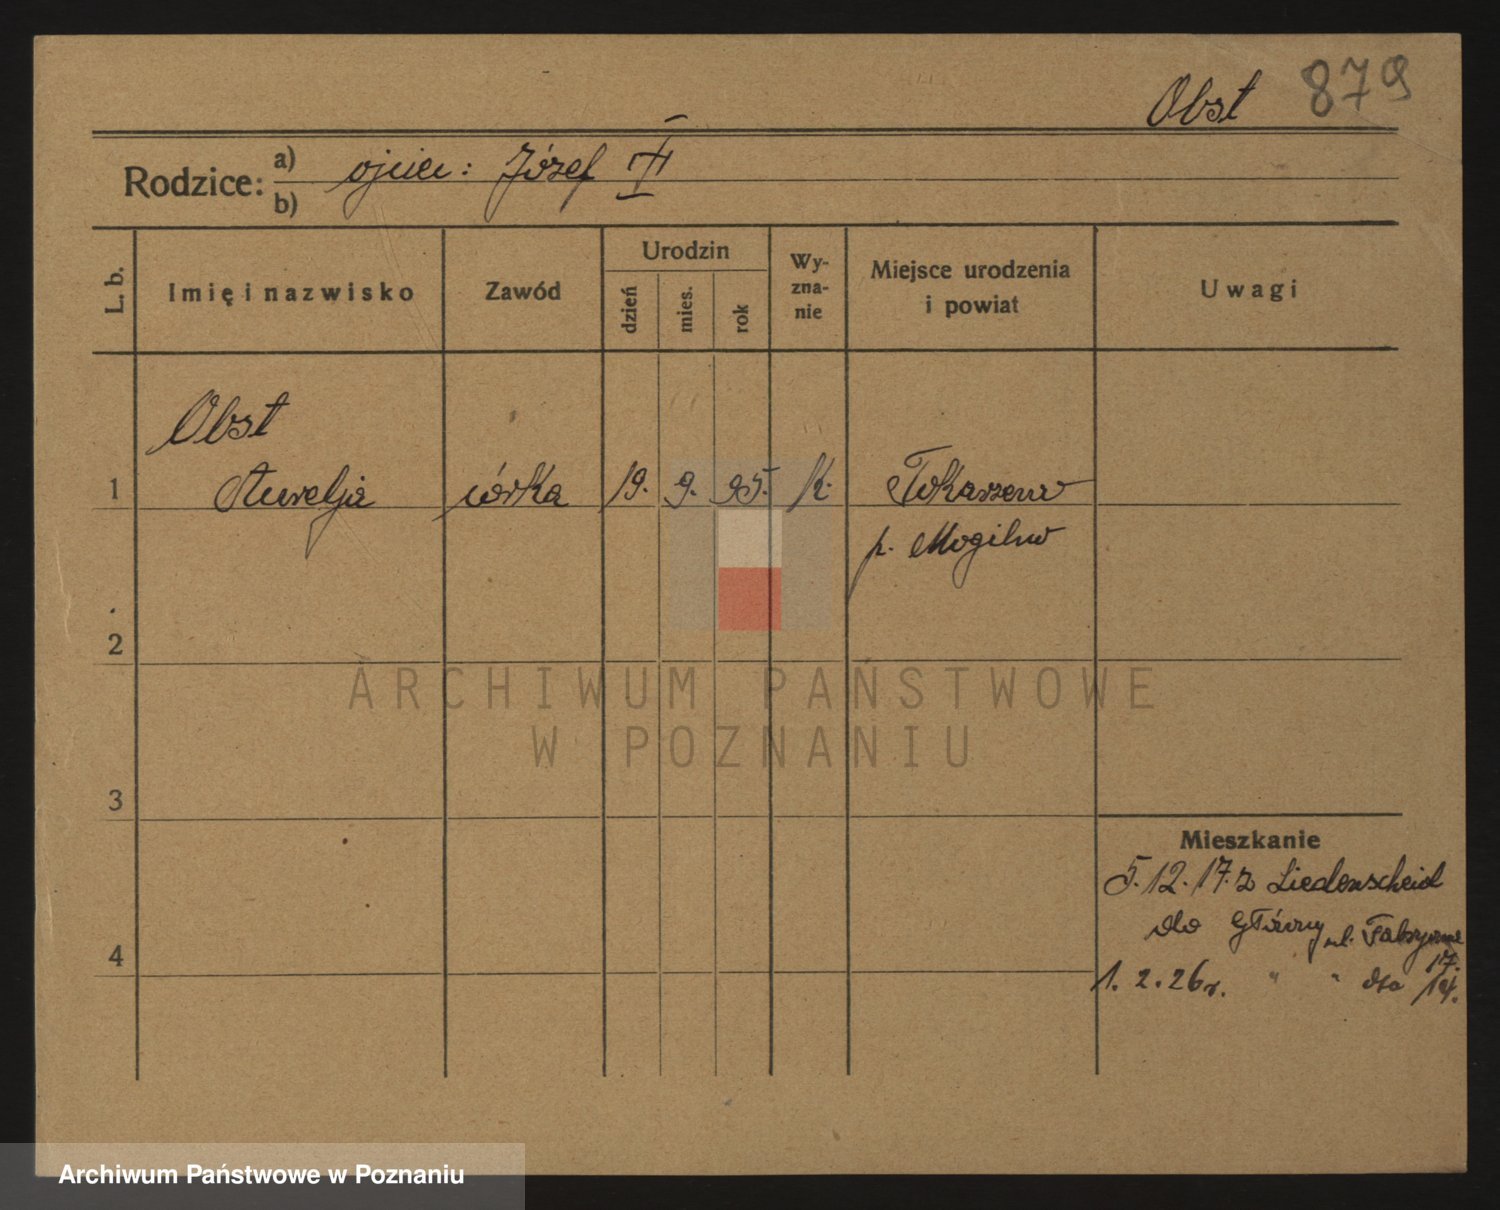 Obst 879
Rodzice: a) ojciec: Józef II
b)
L. b. Imię i nazwisko Zawód Urodzin dzień mies. rok Wyznanie Miejsce urodzenia i powiat Uwagi
Obst
1 Aurelja córka 19. 9. 95. K. Tokarzew
p. Mogilno
2
3
Mieszkanie
5.12.17. z Liedenscheid
do Główny ul. Fabryczna
4
17.
1.2.26r. " " dto 14.
ARCHIWUM PAŃSTWOWE
W POZNANIU
Archiwum Państwowe w Poznaniu